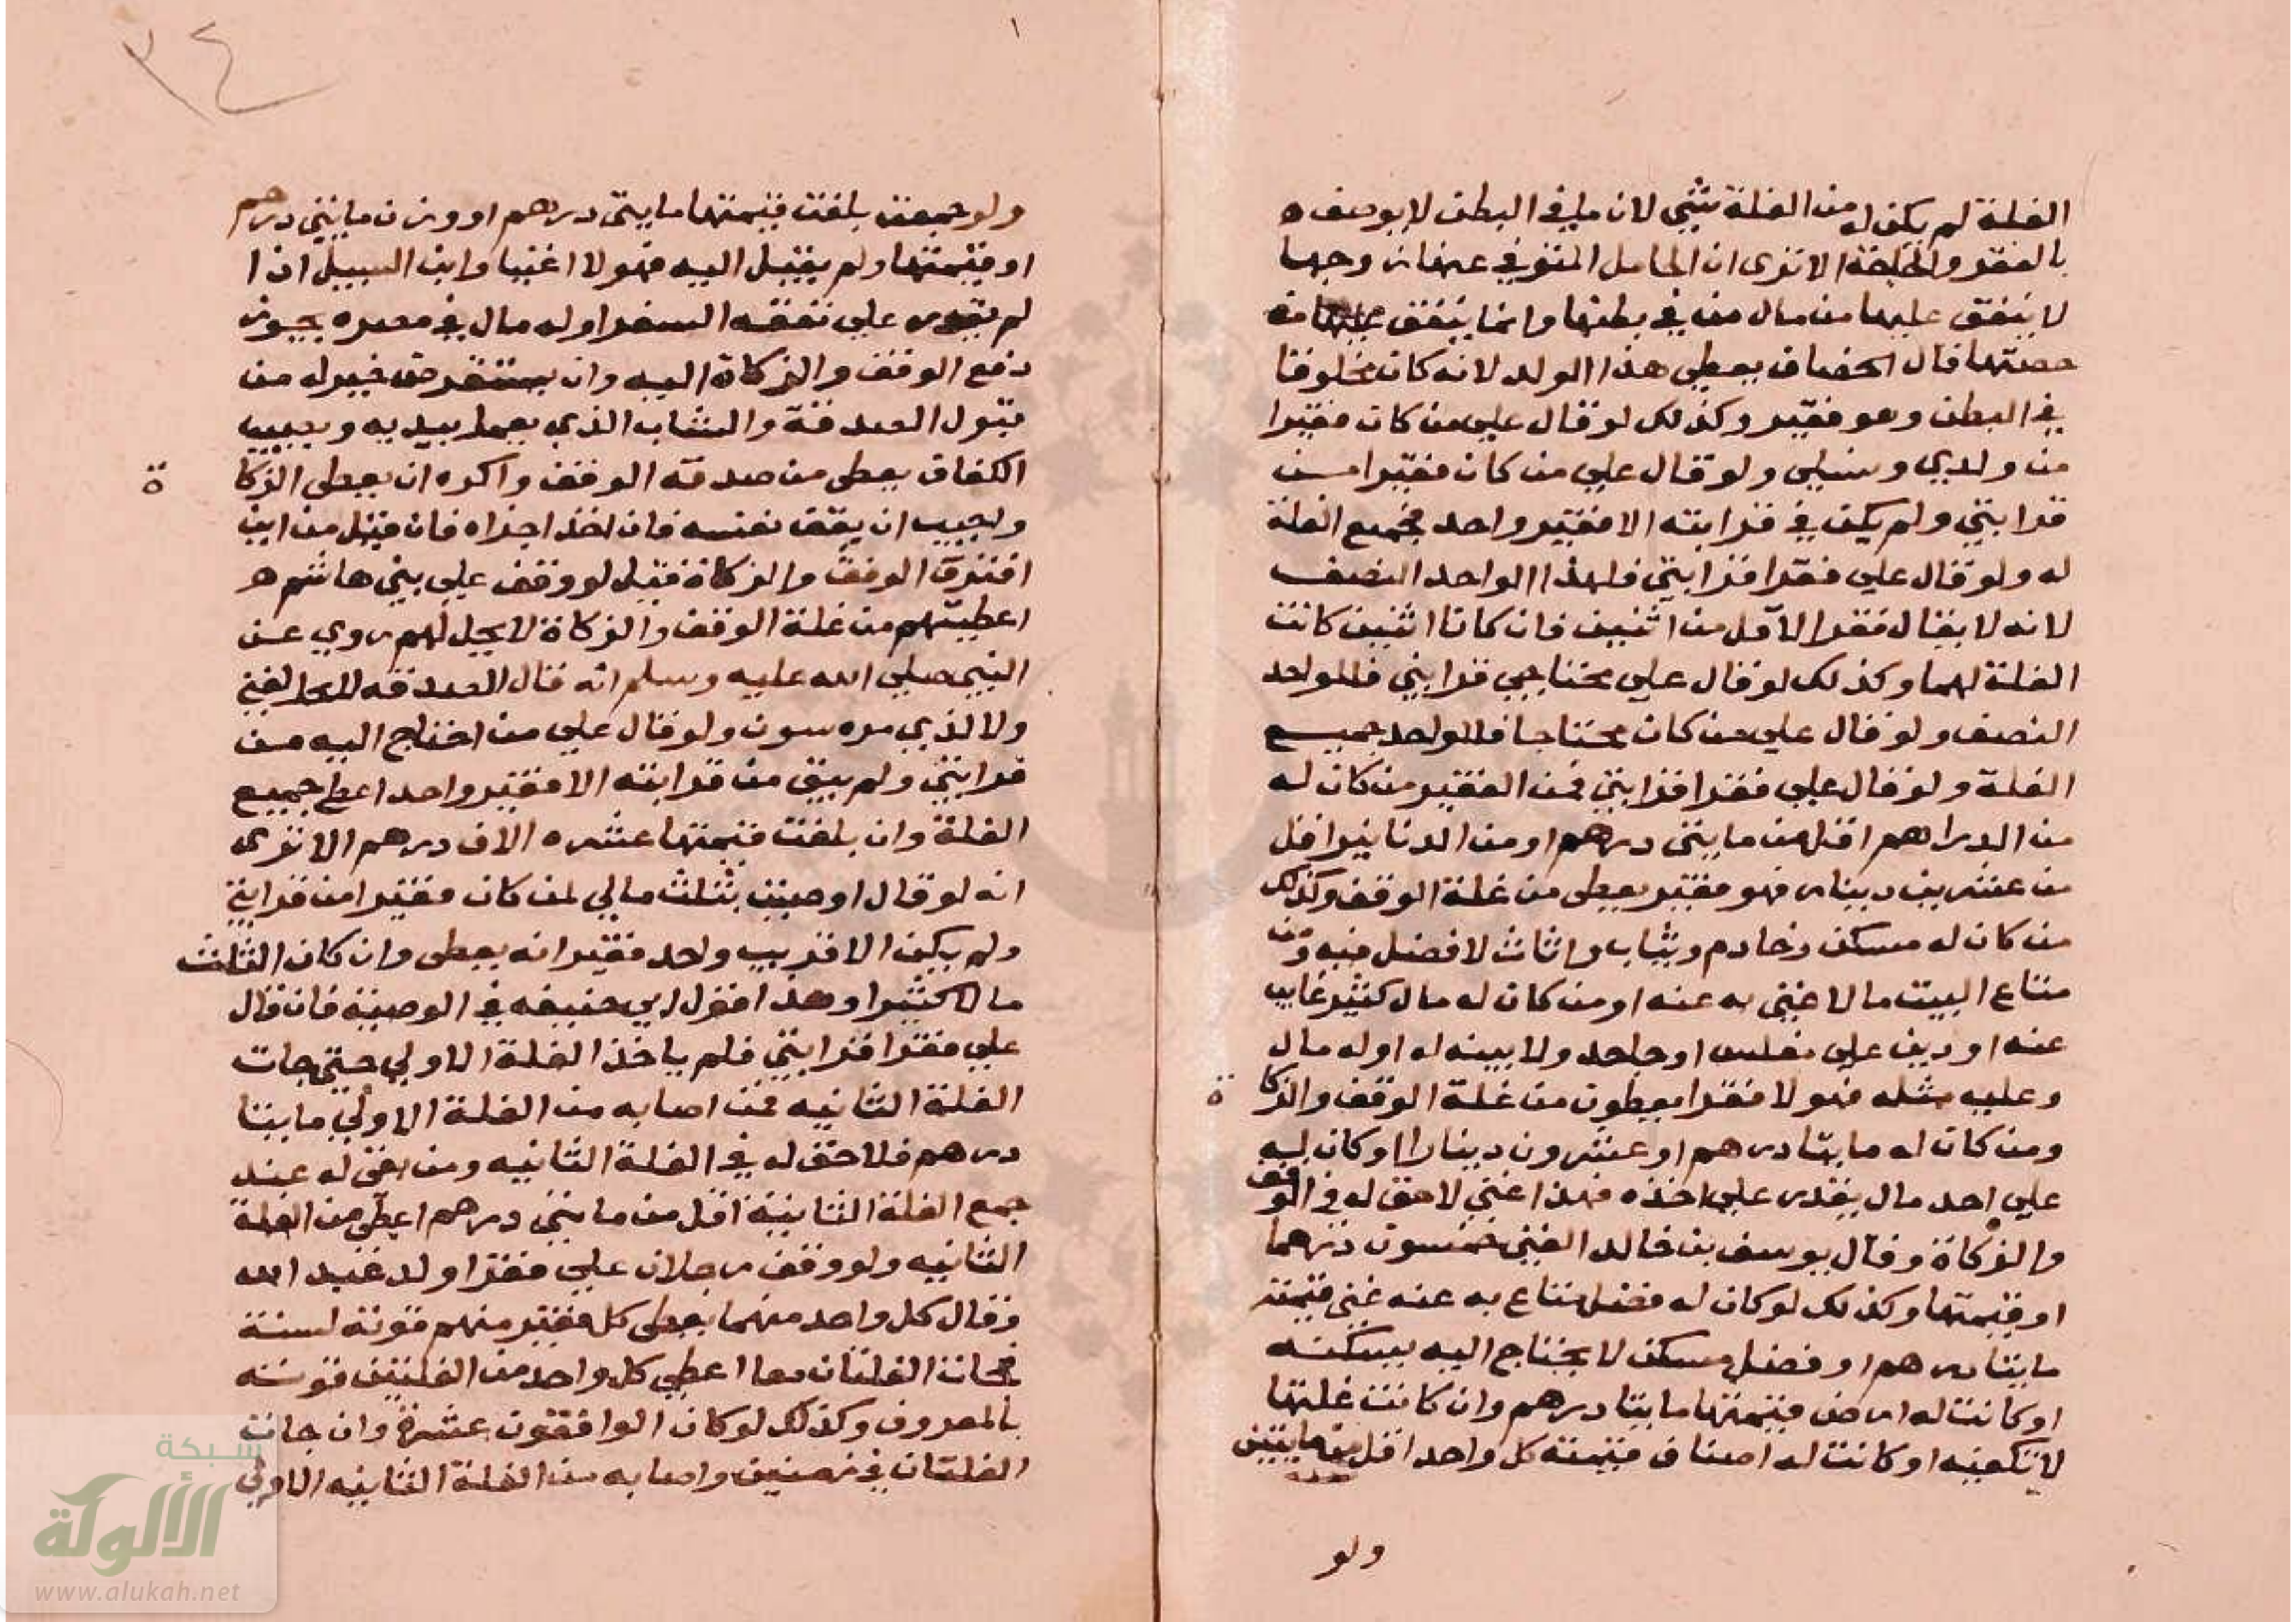 الغلة لم يكن له من الغلة شيء لان ما في البطن لا يوصف
بالفقر والحاجة الا ترى ان الحامل المتوفي عنها زوجها
لا ينفق عليها من مال من في بطنها وانما ينفق عليها من
حصتها قال الخصاف يعطي هذا الولد لانه كان مخلوقا
في البطن وهو فقير وكذلك لو قال علي من كان فقيرا
من ولدي ونسلي ولو قال علي من كان فقيرا من
قرابتي ولم يكن في قرابته الا فقير واحد فجميع الغلة
له ولو قال علي فقرا قرابتي فلهذا الواحد النصف
لانه لا يقال فقرا لاقل من اثنين فان كانا اثنين كانت
الغلة لهما وكذلك لو قال علي محتاجي قرابتي فللواحد
النصف ولو قال علي من كان محتاجا فللواحد جميع
الغلة ولو قال علي فقرا قرابتي فمن الفقير من كان له
من الدراهم اقل من مايتى درهم او من الدنانير اقل
من عشرين دينار فهو فقير يعطى من غلة الوقف وكذلك
من كان له مسكن وخادم وثياب واثاث لا فضل فيه ومن
متاع البيت ما لا غنى به عنه او من كان له مال كثير غايب
عنه او دين علي مفلس او جاحد ولا بينه له او له مال
وعليه مثله فهولا فقرا يعطون من غلة الوقف والزكاة
ومن كان له مايتا درهم او عشرون دينارا او كان له
علي احد مال يقدر علي اخذه فهذا غني لا حق له في الوقف
والزكاة وقال يوسف بن خالد الغني خمسون درهما
او قيمتها وكذلك لو كان له فضل متاع به عنه غنى قيمته
مايتا درهم او فضل مسكن لا يحتاج اليه يسكنه
او كانت له ارض قيمتها مايتا درهم وان كانت غلتها
لا تكفيه او كانت له اصناف قيمته كل واحد اقل من مايتين
ولو
ولو جمعت بلغت قيمتها مايتى درهم او وزن مايتي درهم
او قيمتها ولم يقبل اليه فهولا اغنيا وابن السبيل اذا
لم يقدر علي نفقه السفر او له مال في مصره يجوز
دفع الوقف والزكاة اليه وان يستقرض خير له من
قبول الصدقة والشاب الذي يعمل بيديه ويصيب
الكفاف يعطى من صدقة الوقف واكره ان يعطى الزكاة
ويجب ان يعف نفسه فان اخذ اجزاه فان قيل من اين
افترق الوقف والزكاة قيل لو وقف علي بني هاشم
اعطيتهم من غلة الوقف والزكاة لا يحل لهم روي عن
النبي صلي الله عليه وسلم انه قال الصدقه لا تحل لغني
ولا لذي مره سوي ولو قال علي من احتاج اليه من
قرابتي ولم يبق من قرابته الا فقير واحد اعطى جميع
الغلة وان بلغت قيمتها عشره الاف درهم الا ترى
انه لو قال اوصيت بثلث مالي لمن كان فقيرا من قرابتي
ولم يكن الا قريب واحد فقير انه يعطى وان كان الثلث
مالا كثيرا وهذا قول ابي حنيفه في الوصية فان قال
علي فقرا قرابتي فلم ياخذ الغلة الاولي حتى جات
الغلة الثانيه فمن اصابه من الغلة الاولي مايتا
درهم فلا حق له في الغلة الثانيه ومن بقى له عند
جمع الغلة الثانية اقل من مايتي درهم اعطى من الغلة
الثانيه ولو وقف رجلان علي فقرا ولد عبد الله
وقال كل واحد منهما يعطى كل فقير منهم قوته لسنة
فجات الغلتان معا اعطي كل واحد من الغلتين قوت سنه
بالمعروف وكذلك لو كان الواقفون عشرة وان جات
الغلتان في زمنين واصابه من الغلة الثانيه الاولي
٢٤
شبكة
الألوكة
www.alukah.net